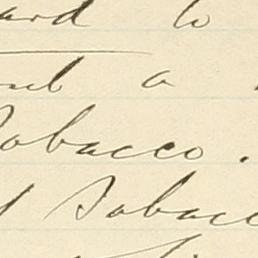 ard to
a
Tobacco.
Tobacc